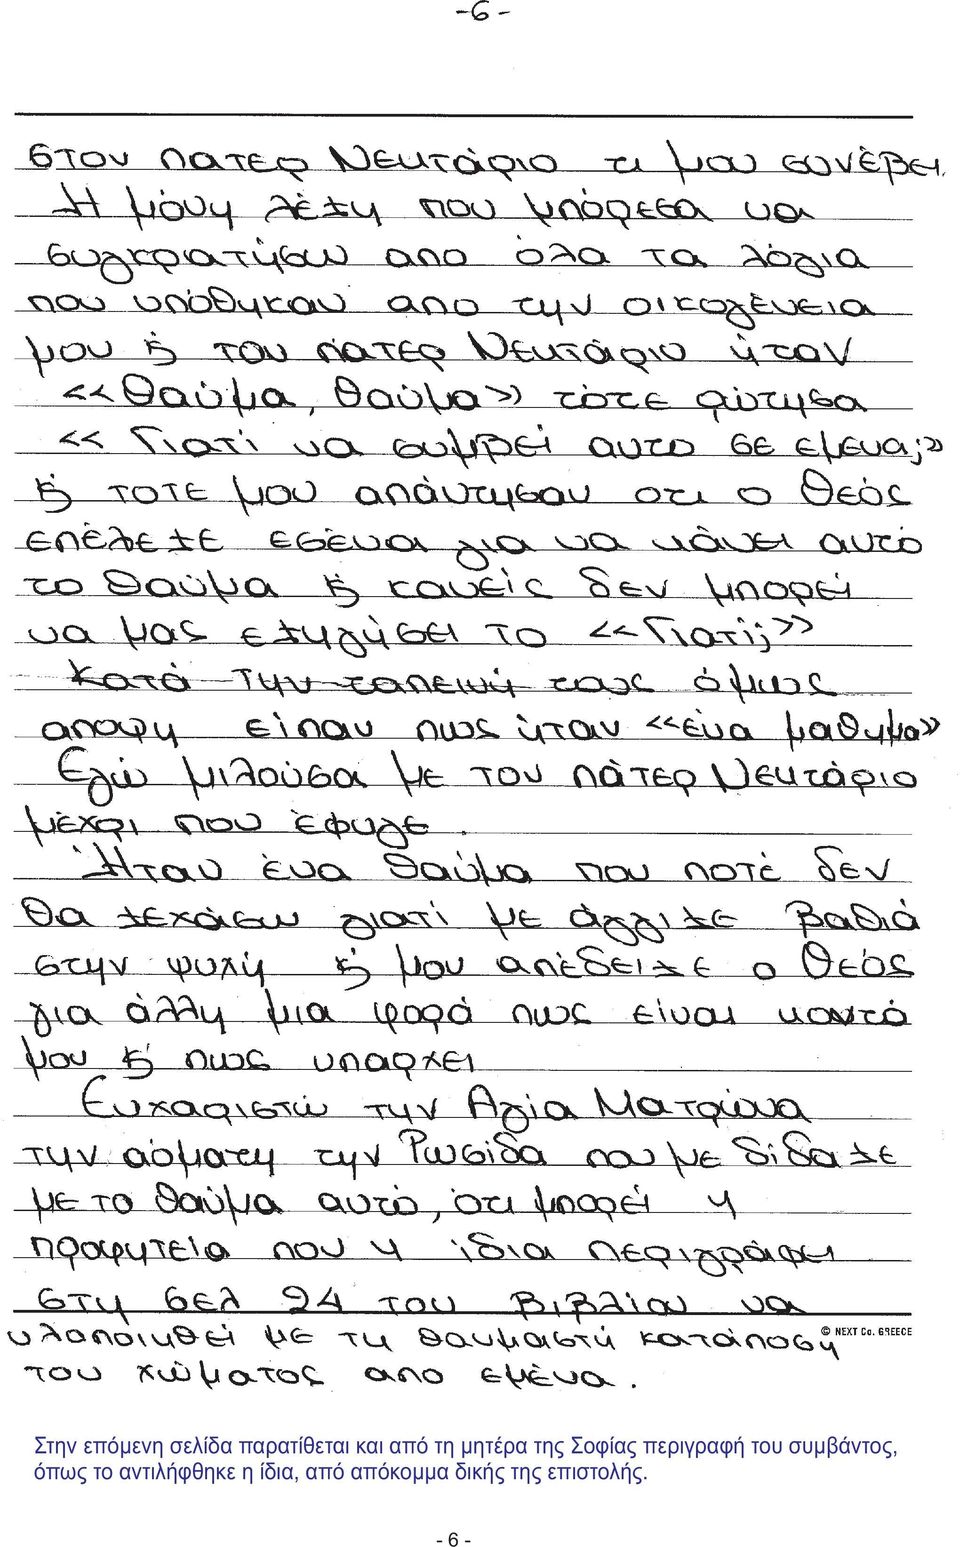 -6-
στον πατερ Νεκτάριο τι μου συνέβει.
Η μόνη λέξη που μπόρεσα να
συγκρατήσω απο όλα τα λόγια
που υπόθηκαν απο την οικογένεια
μου ϗ του πατερ Νεκτάριο ήταν
<<Θαύμα, Θαύμα>> τότε ρώτησα
<< Γιατί να συμβεί αυτο σε εμενα;>>
ϗ τοτε μου απάντησαν οτι ο Θεός
επέλεξε εσένα για να κάνει αυτό
το θαύμα ϗ κανείς δεν μπορεί
να μας εξηγήσει το <<Γιατί;>>
Κατά την ταπεινή τους όμως
αποψη είπαν πως ήταν <<ένα μαθημα>>
Εγώ μιλούσα με τον πάτερ Νεκτάριο
μέχρι που έφυγε.
Ήταν ένα θαύμα που ποτέ δεν
θα ξεχάσω γιατί με άγγιξε βαθιά
στην ψυχή ϗ μου απέδειξε ο Θεός
για άλλη μια φορά πως είναι κοντά
μου ϗ πως υπαρχει
Ευχαριστώ την Αγία Ματρώνα
την αόματη την Ρωσίδα που με δίδαξε
με το θαύμα αυτό, ότι μπορεί η
προφητεία που η ίδια περιγράφει
στη σελ 94 του βιβλίου να
υλοποιηθεί με τη θαυμαστή καταποση
© NEXT Co. GREECE
του χώματος απο εμένα.
Στην επόμενη σελίδα παρατίθεται και από τη μητέρα της Σοφίας περιγραφή του συμβάντος,
όπως το αντιλήφθηκε η ίδια, από απόκομμα δικής της επιστολής.
- 6 -